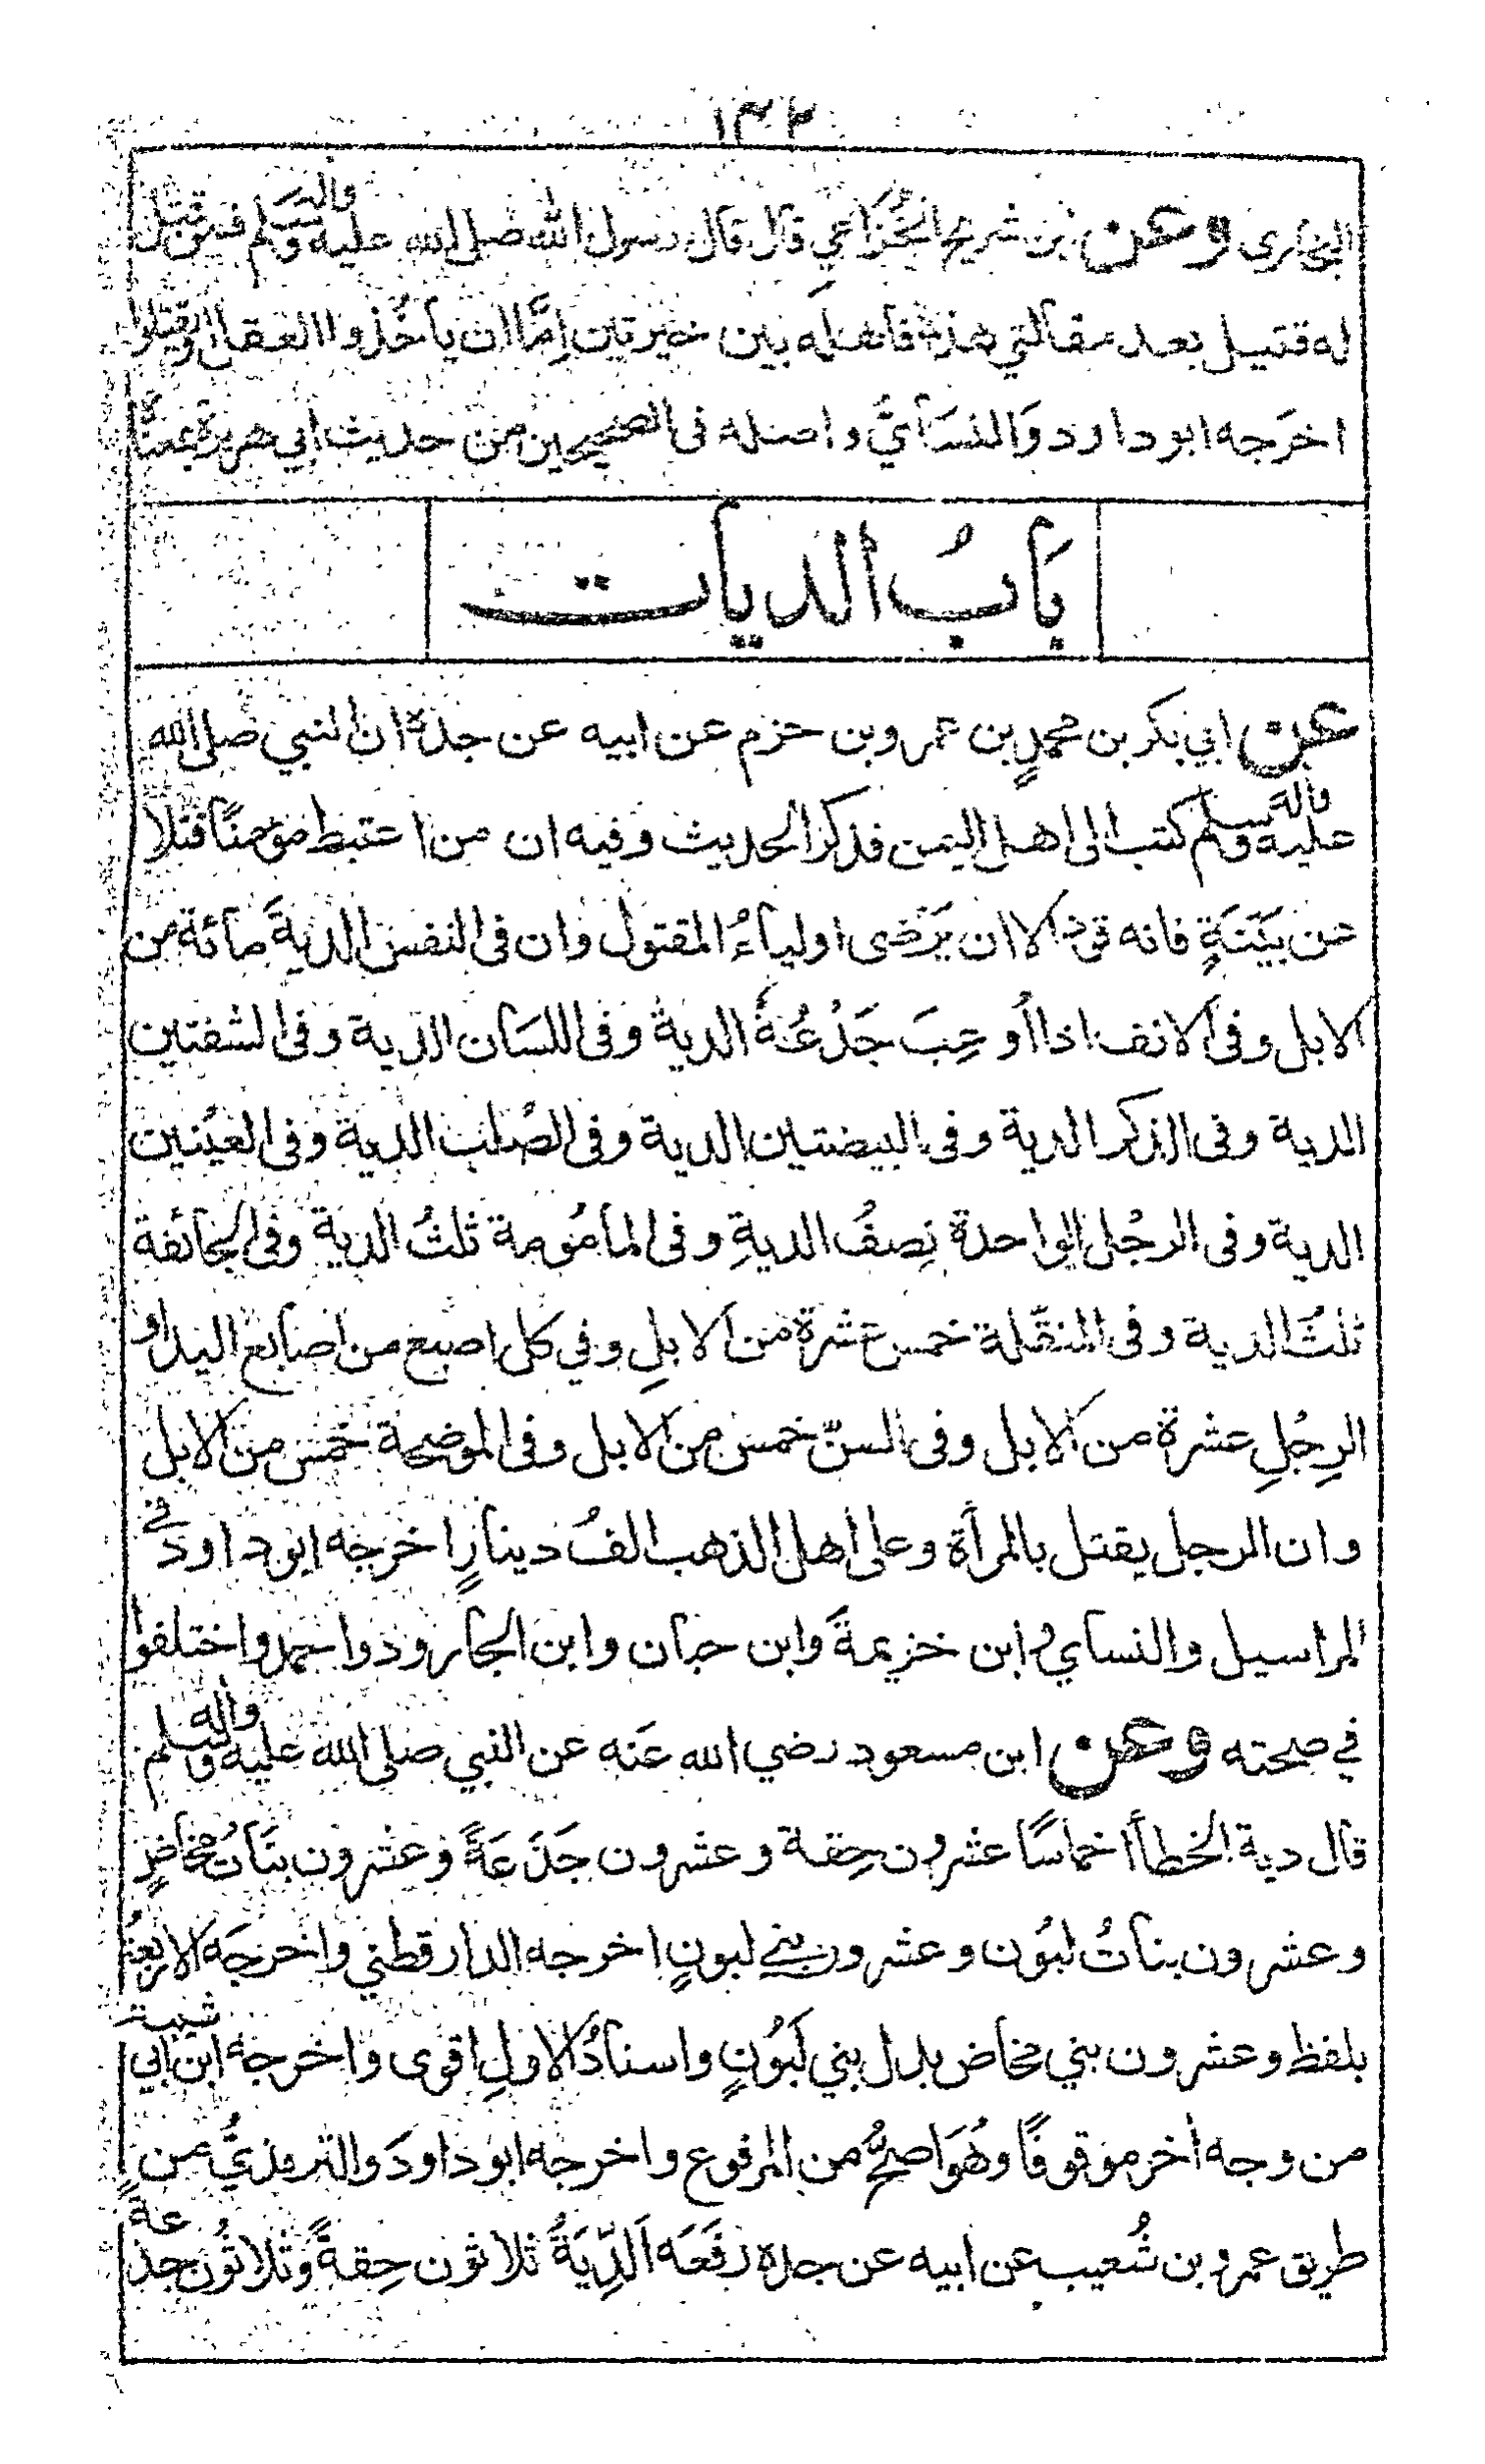 ١٣٢
البخاری وعن ابن شریح الخُزَاعيِ قال قال رسول الله صلى الله عليه واله وسلم فمن قُتِل
له قتيل بعد مقالتي هذه فاهله بين خيرتين اِمَّا ان يأخُذوا العقل او يقتلوا
اخرَجه ابوداود وَالنسَآئيُّ واصله فى الصحيحين من حديث ابي هريرة بمعناه
بَابُ الديات
عن ابي بكر بن محمدٍ بن عمرو بن حزم عن ابيه عن جدّه ان النبي صلى الله
عليه واله وسلم كتب الى اهل اليمن فذكر الحديث وفيه ان من اعتبط مؤمنًا قتلا
عن بَيّنَةٍ فانه قود الا ان يَرْضى اولياءُ المقتول وان فى النفس الديةَ مآئة من
الابل وفى الانف اذا اُوعِبَ جَدْعُهُ الدية وفى اللسَان الدية وفى الشفتين
الدية وفى الذكر الدية وفى البيضتين الدية وفى الصُلب الدية وفى العينين
الدية وفى الرجْل الواحدة نِصفُ الديةِ وفى المأمُومة ثلثُ الدية وفى الجآئفة
ثلثُ الدية وفى المنقّلة خمس عشرة من الابلِ وفي كل اصبع من اصابع اليد او
الرِجْلِ عشرة من الابل وفى السنّ خمس من الابل وفى الموضحة خمس من الابل
وان الرجل يقتل بالمرأة وعلى اهل الذهب الفُ دينارٍ اخرجه ابوداود في
المراسيل والنسآي وابن خزيمةَ وابن حبان وابن الجارود واحمد واختلفوا
في صحته وعن ابن مسعود رضي الله عَنه عن النبي صلى الله عليه واله وسلم
قال دية الخطأ اخماسًا عشرون حِقة وعشرون جَذَعَةً وعشرون بنَاتُ مخاضٍ
وعشرون بنَاتُ لبُون وعشرون بنے لبونٍ اخرجه الدارقطني واخرجَه الاربعةُ
بلفظ وعشرون بني مخاض بدل بني لَبُونٍ واسنادُ الاولِ اقوى واخرجه ابن ابي شيبة
من وجه اخر موقوفًا وهُوَ اصحُّ من المرفوع واخرجه ابوداودَ والترمذيُّ من
طريق عمرو بن شُعيب عن ابيه عن جده رَفَعَه اَلدِّيَةُ ثلاثون حِقةً وثلاثُون جذعةً